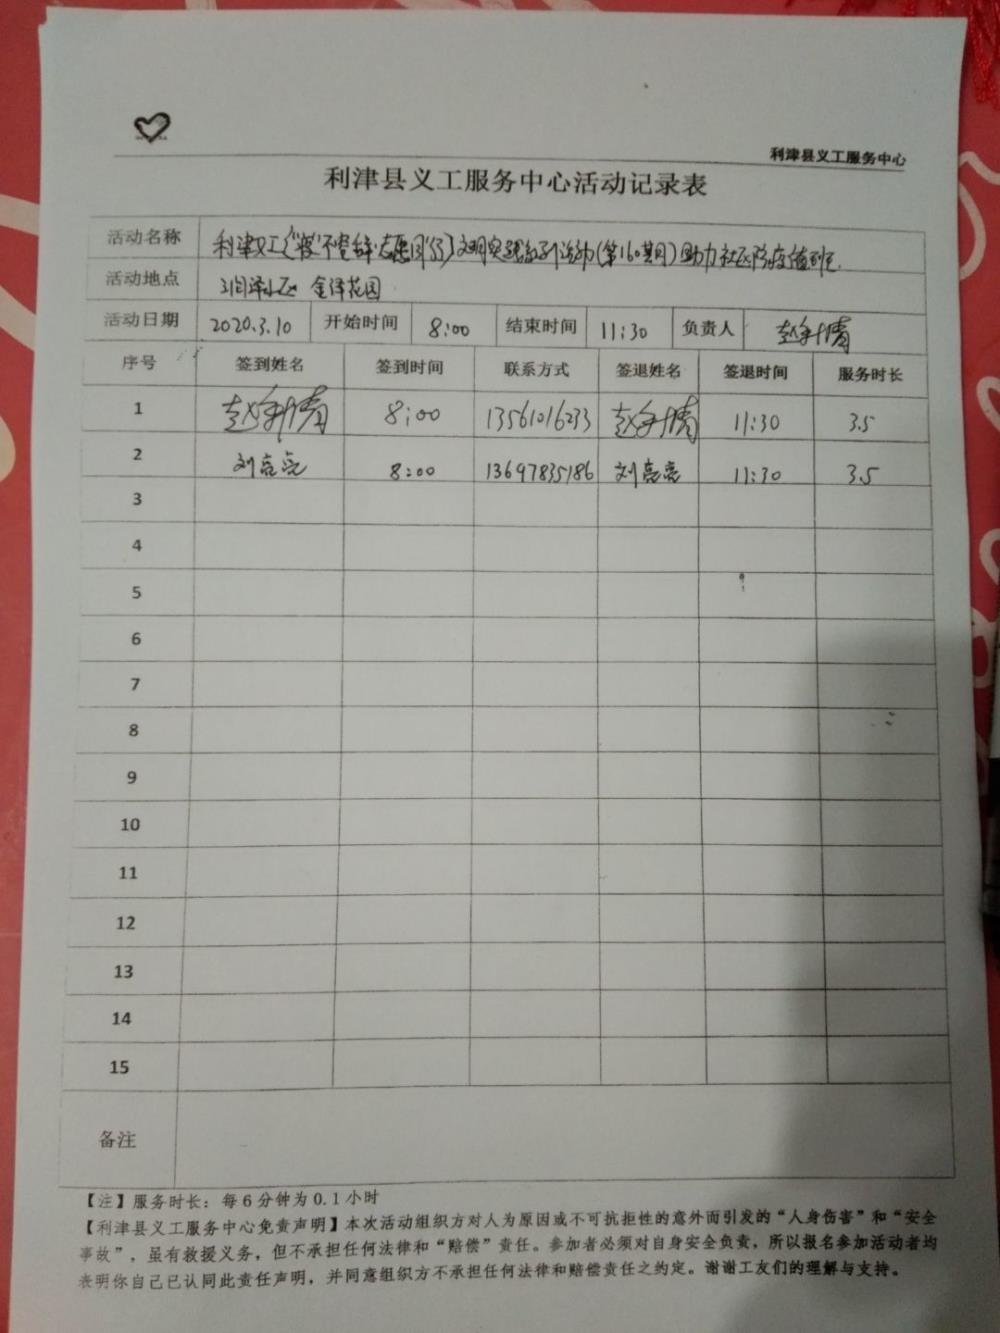 利津县义工服务中心
利津县义工服务中心活动记录表
活动名称 利津义工 不 文明实践系列活动(第160期)助力社区防疫值班
活动地点 润泽小区 金泽花园
活动日期 2020.3.10 开始时间 8:00 结束时间 11:30 负责人 赵
序号 签到姓名 签到时间 联系方式 签退姓名 签退时间 服务时长
1 赵 8:00 13561016233 赵 11:30 3.5
2 刘亮亮 8:00 13697835186 刘亮亮 11:30 3.5
3
4
5
6
7
8
9
10
11
12
13
14
15
备注
【注】服务时长：每6分钟为0.1小时
【利津县义工服务中心免责声明】本次活动组织方对人为原因或不可抗拒性的意外而引发的“人身伤害”和“安全
事故”，虽有救援义务，但不承担任何法律和“赔偿”责任。参加者必须对自身安全负责，所以报名参加活动者均
表明你自己已认同此责任声明，并同意组织方不承担任何法律和赔偿责任之约定。谢谢工友们的理解与支持。